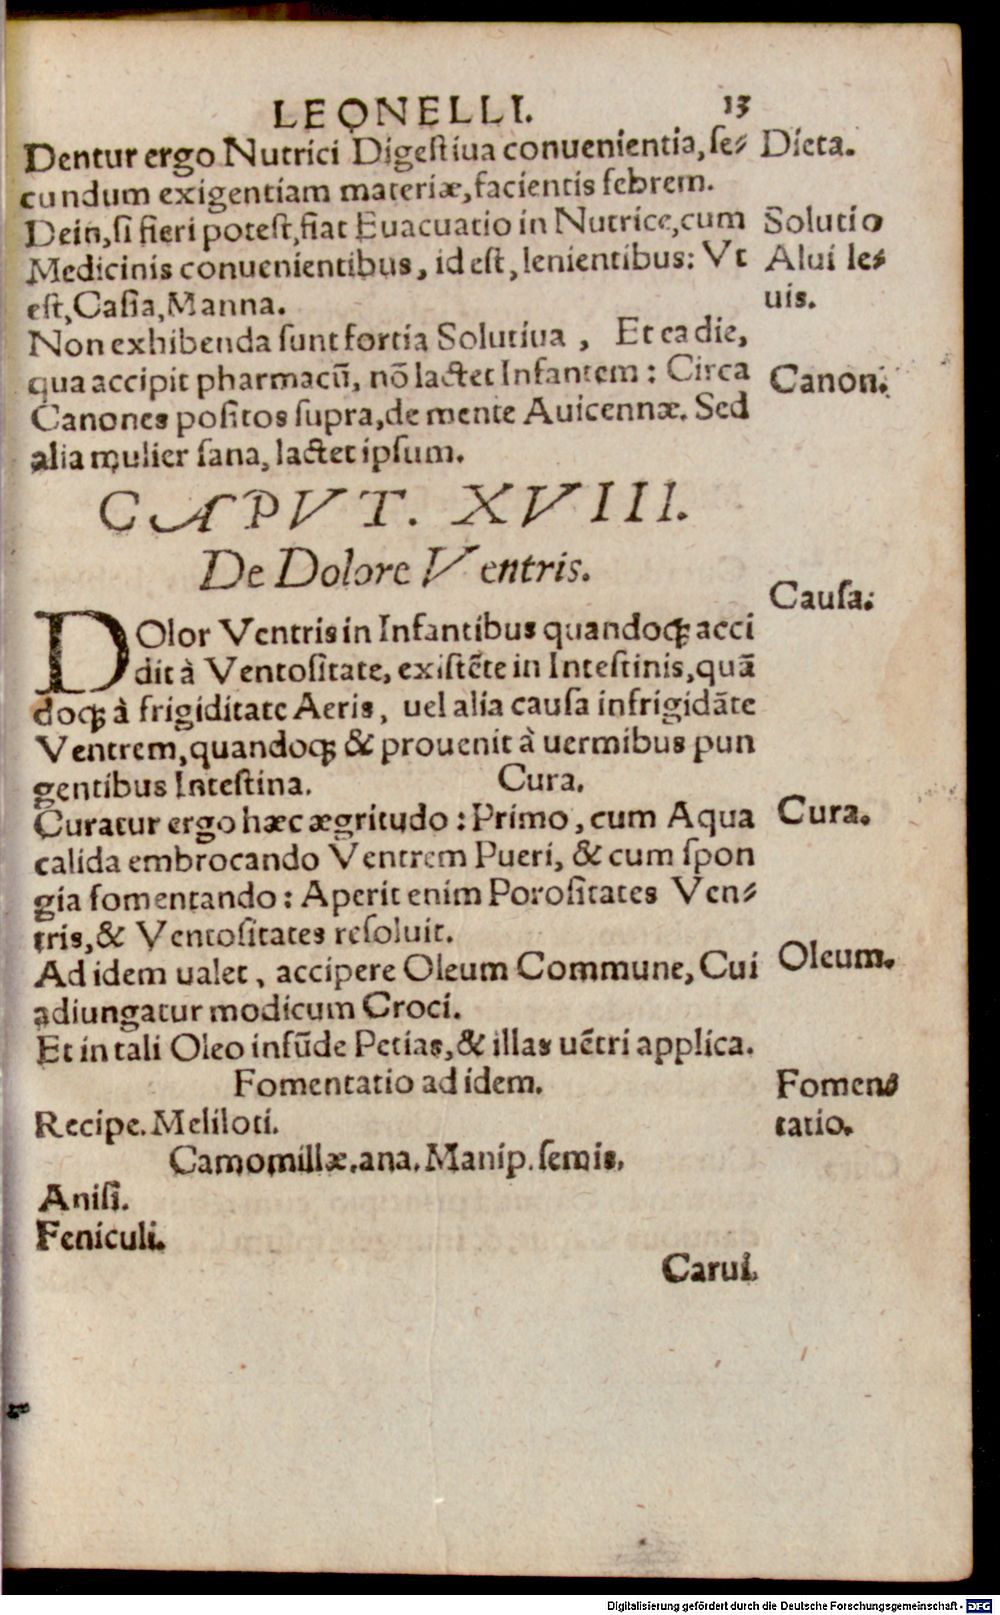 LEONELLI. 13
Dentur ergo Nutrici Digeſtiua conuenientia, ſe⸗ Dieta.
cundum exigentiam materiæ, facientis febrem.
Dein, ſi fieri poteſt, fiat Euacuatio in Nutrice, cum Solutio
Medicinis conuenientibus, id eſt, lenientibus: Vt Alui le⸗
eſt, Caſia, Manna. uis.
Non exhibenda ſunt fortia Solutiua, Et ea die,
qua accipit pharmacū, nō lactet Infantem: Circa Canon.
Canones poſitos ſupra, de mente Auicennæ. Sed
alia mulier ſana, lactet ipſum.
CAPVT. XVIII.
De Dolore Ventris.
Cauſa.
DOlor Ventris in Infantibus quandoqꝫ acci
dit à Ventoſitate, exiſtēte in Inteſtinis, quā
doqꝫ à frigiditate Aeris, uel alia cauſa infrigidāte
Ventrem, quandoqꝫ & prouenit à uermibus pun
gentibus Inteſtina. Cura.
Curatur ergo hæc ægritudo: Primo, cum Aqua Cura.
calida embrocando Ventrem Pueri, & cum ſpon
gia fomentando: Aperit enim Poroſitates Ven⸗
tris, & Ventoſitates reſoluit.
Ad idem ualet, accipere Oleum Commune, Cui Oleum.
adiungatur modicum Croci.
Et in tali Oleo infūde Petias, & illas uētri applica.
Fomentatio ad idem. Fomen⸗
Recipe. Meliloti. tatio.
Camomillæ. ana. Manip. ſemis.
Aniſi.
Feniculi.
Carui.
Digitalisierung gefördert durch die Deutsche Forschungsgemeinschaft - DFG